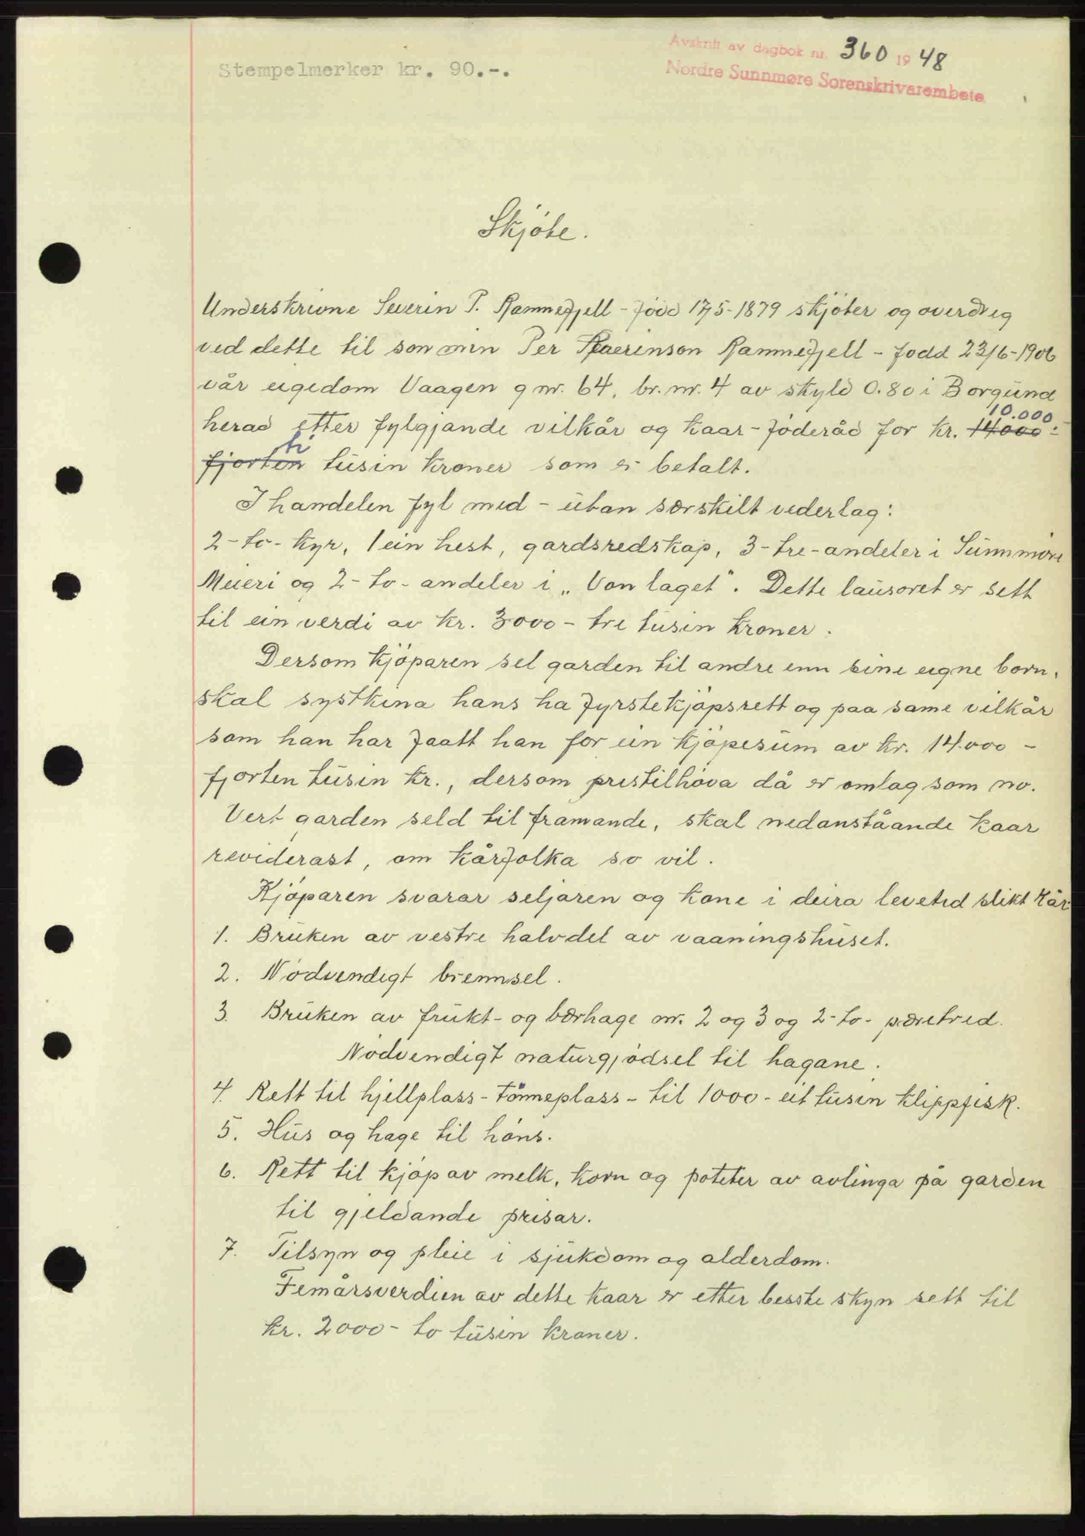 Avskrift av dagbok nr. 360 1948
Nordre Sunnmøre Sorenskrivarembete
Stempelmerker kr. 90.-.
Skjöte.
Underskrivne Severin P. Rammefjell - född 17/5-1879 skjöter og overdreg
ved dette til son min Per Severinson Rammefjell - fodd 23/6-1906
vår eigedom Vaagen g nr. 64, br. nr. 4 av skyld 0.80 i Borgund
10.000
herad etter fylgjande vilkår og kaar-föderåd for kr. 14000.-
ti
fjorten tusin kroner som er betalt.
I handelen fyl med - utan særskilt vederlag:
2-to-kyr, 1 ein hest, gardsredskap, 3-tre-andeler i Sunnmöre
Meieri og 2-to-andeler i „Von laget". Dette lausoret er sett
til ein verdi av kr. 3000 - tre tusin kroner.
Dersom kjöparen sel garden til andre enn sine eigne born,
skal systkina hans ha fyrstekjöpsrett og paa same vilkår
som han har faatt han for ein kjöpesum av kr. 14.000 -
fjorten tusin kr., dersom pristilhöva då er omlag som no.
Vert garden seld til framande, skal nedanståande kaar
reviderast, om kårfolka so vil.
Kjöparen svarar seljaren og kone i deira levetid slikt kår
1. Bruken av vestre halvdel av vaaningshuset.
2. Nödvendigt brennsel.
3. Bruken av frukt- og bærhage nr. 2 og 3 og 2-to- pæretred.
Nödvendigt naturgjödsel til hagane.
4. Rett til hjellplass - tönneplass - til 1000 - eit tusin klippfisk.
5. Hus og hage til höns.
6. Rett til kjöp av melk, korn og poteter av avlinga på garden
til gjeldande prisar.
7. Tilsyn og pleie i sjukdom og alderdom.
Femårsverdien av dette kaar er etter besste skyn sett til
kr. 2000 - to tusin kroner.